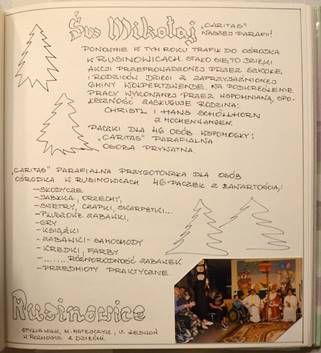 Św Mikołaj „CARITAS”
NASZEJ PARAFII!
PONOWNIE W TYM ROKU TRAFIŁ DO OŚRODKA
W RUSINOWICACH. STAŁO SIĘ TO DZIĘKI
AKCJI PRZEPROWADZONEJ PRZEZ SZKOŁĘ,
I RODZICÓW DZIECI Z ZAPRZYJAŹNIONEJ
GMINY WOLPERTSHENDE. NA PODKREŚLENIE
PRACY WYKONANEJ PRZEZ WSPOMNIANĄ, SPO-
ŁECZNOŚĆ ZASŁUGUJE RODZINA:
CHRISTL I HANS SCHÖLLHORN
Z MOCHENWANGEN.
PACZKI DLA 46 OSÓB WSPOMOGŁY:
„CARITAS” PARAFIALNA
OSOBA PRYWATNA
„CARITAS” PARAFIALNA PRZYGOTOWAŁA DLA OSÓB
OŚRODKA W RUSINOWICACH 46 PACZEK Z ZAWARTOŚCIĄ:
- SŁODYCZE
- JABŁKA, ORZECHY,
- SWETRY, CZAPKI, SKARPETKI...
- PLUSZOWE ZABAWKI,
- GRY
- KSIĄŻKI
- ZABAWKI - SAMOCHODY
- KREDKI, FARBY
- ........ RÓŻNORODNOŚĆ ZABAWEK
- PRZEDMIOTY PRAKTYCZNE
Rusinowice
Z DZIEĆMI.